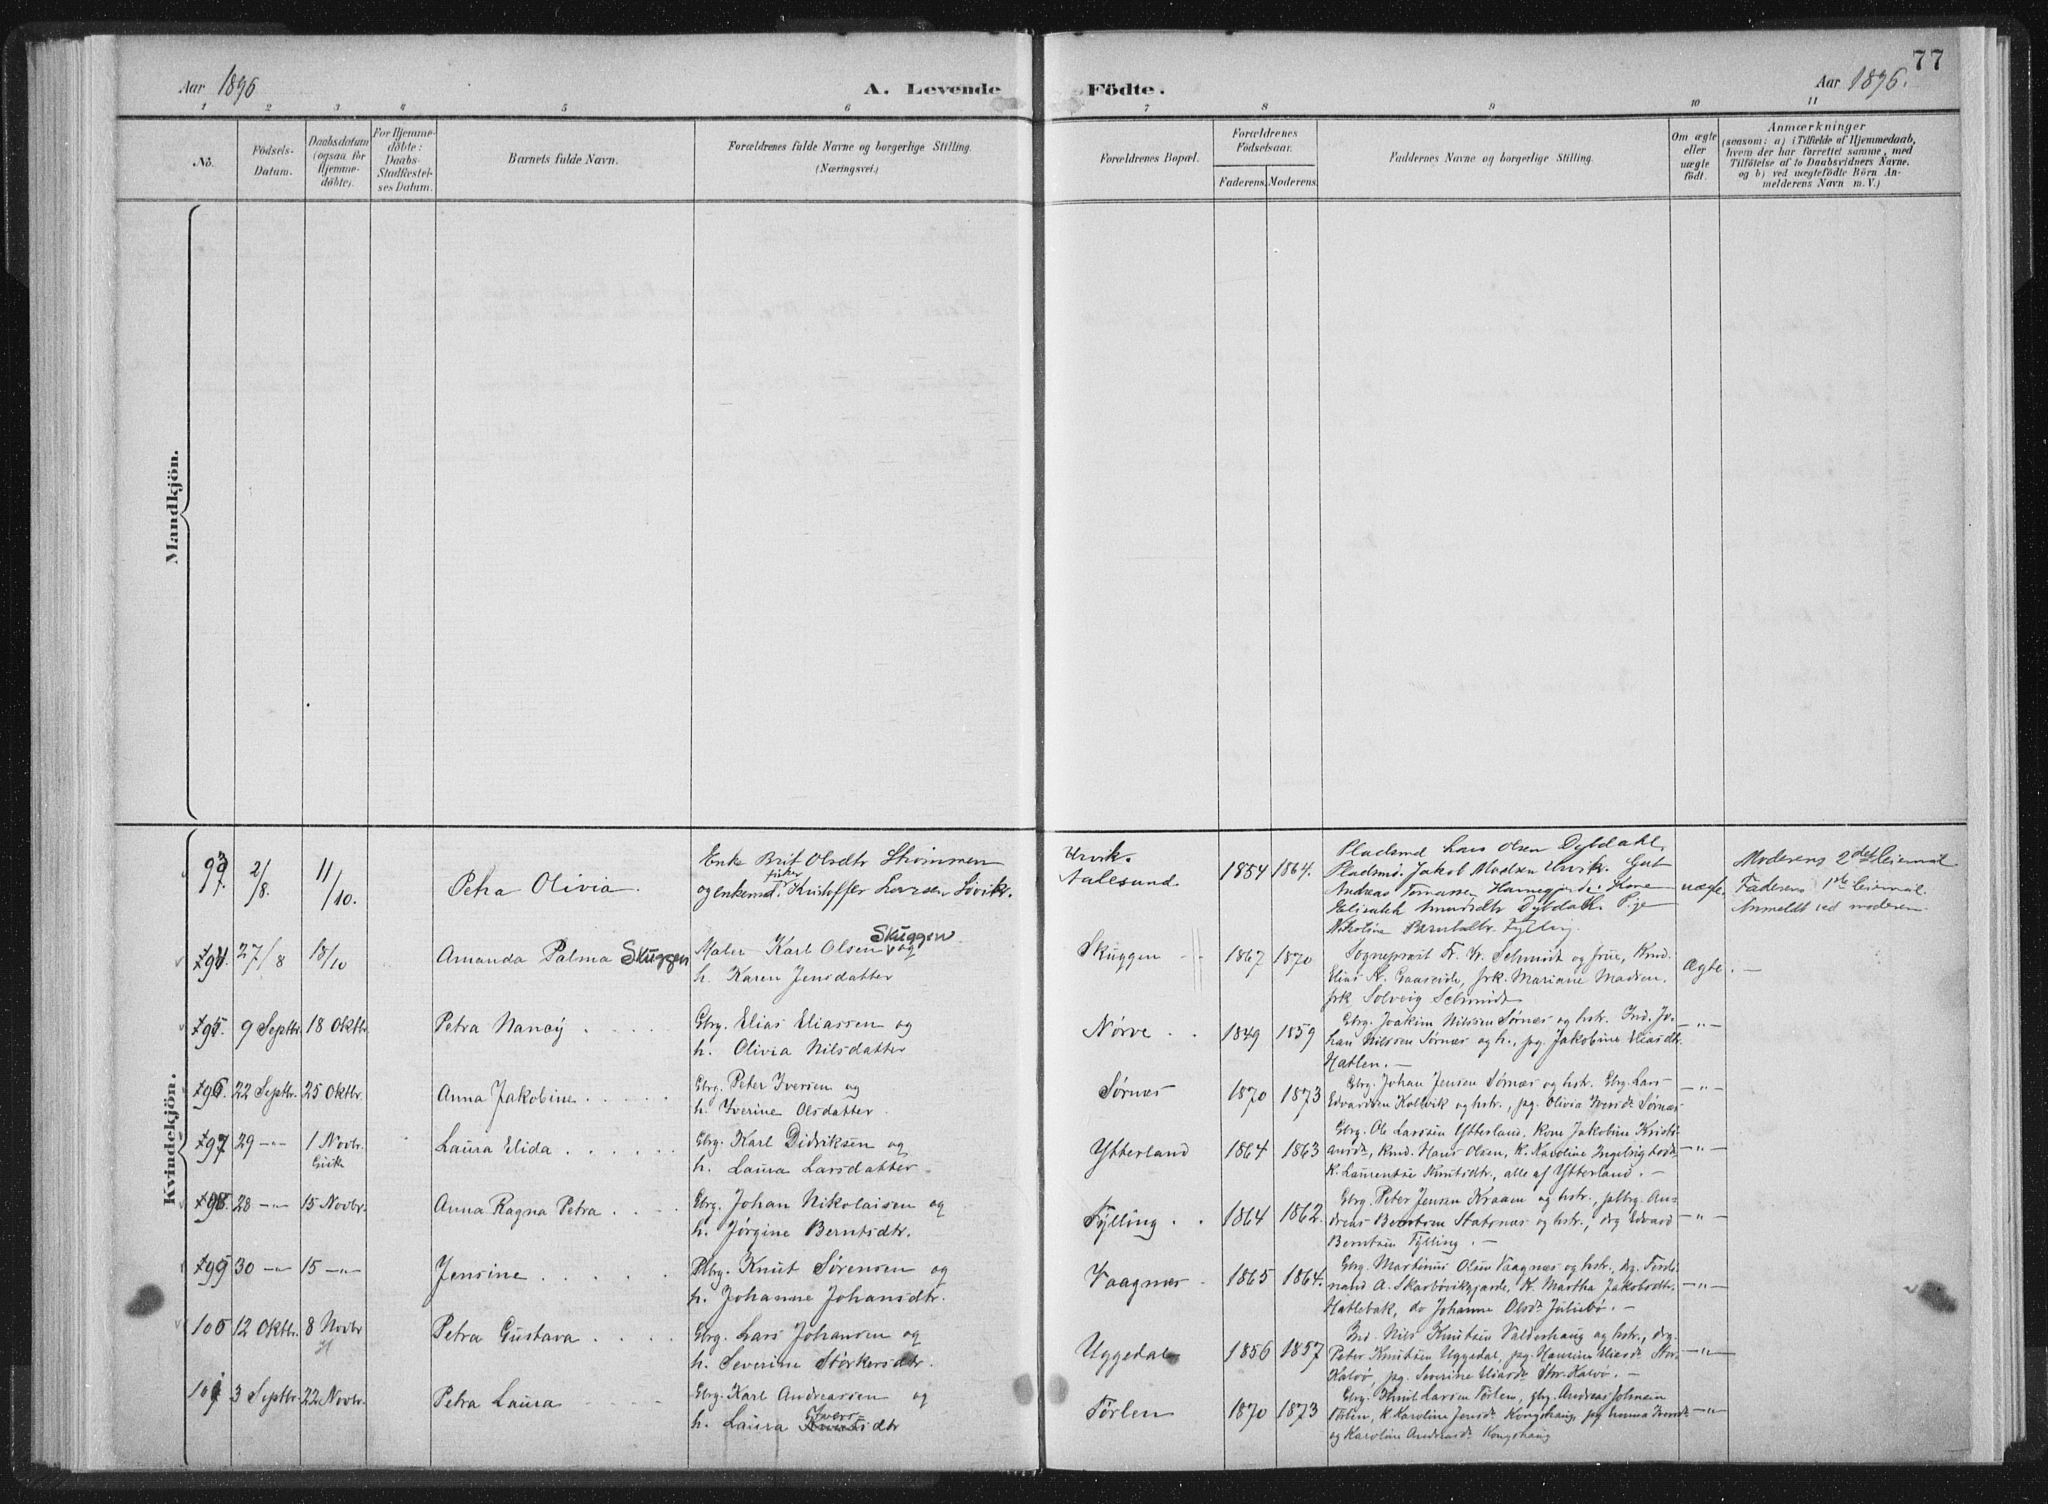 77
Aar 1896
A. Levende
Födte.
Aar 1896.
1 2 3 4 5 6 7 8 9 10 11
No.
Födsels-
Datum.
Daabsdatum
(ogsaa för
Hjemme-
döbte).
For Hjemme-
döbte:
Daabs-
Stadfæstel-
ses Datum.
Barnets fulde Navn.
Forældrenes fulde Navne og borgerlige Stilling.
(Næringsvei.)
Forældrenes Bopæl.
Forældrenes
Födselsaar.
Faderens. Moderens.
Faddernes Navne og borgerlige Stilling.
Om ægte
eller
uægte
födt.
Anmærkninger
(saasom: a) i Tilfælde af Hjemmedaab,
hvem der har forrettet samme, med
Tilföielse af to Daabsvidners Navne.
og b) ved uægtefödte Börn An-
melderens Navn m. V.)
Mandkjön.
Kvindekjön.
2/8. 11/10. Petra Olivia.
Enke Brit Olsdtr Strømmen
fisker
og enkemd. Kristoffer Larsen
Aalesund.
1854 1864.
Pladsmd Lars Olsen Dybdahl,
Pladsmd. Jakob Madsen
Andreas
Elisabeth Dybdahl. Pige
Nikoline Fylling.
uægte
Moderens 2det leiermaal
Faderens 1ste leiermaal.
Anmeldt ved moderen.
94. 27/8 18/10 Amanda Palma Skuggen
Maler Karl Olsen Skuggen og
h. Karen Jensdatter
Skuggen
1867 1870
Sogneprest F. W. Schmidt og frue, Kmd.
Elias A. Gaaseide, frk. Mariane Madsen,
frk Solveig Schmidt
Ægte. —
95. 9 Septbr. 18 Oktbr. Petra Nancy
Gbrg. Elias Eliassen og
h. Olivia Nilsdatter
Nørve
1849 1859
Gbrg. Joakim Nilssen Sørnes og hstr. Ind. Jo-
han Nilssen Sørnæs og h., pg. Jakobine Eliasdtr.
Hatlen. —
—"—
96. 22 Septbr. 25 Oktbr. Anna Jakobine
Gbrg. Peter Iversen og
h. Iverine Olsdatter
Sørnæs
1870 1873
Gbrg. Johan Jensen Sørnæs og hstr. Gbrg. Lars
Edvardsen Kolvik og hstr., pg. Olivia Iversdr. Sørnæs
—"—
97 29 —"— 1 Novbr. Laura Elida
Giske
Gbrg. Karl Didriksen og
h. Laura Larsdatter
Ytterland
1864 1863
Gbrg. Ole Larssen Ytterland, Kone Jakobine Kristi-
ansdr, Kmd. Hans Olsen, K. Karoline Ingebrigtsdr.
K. Laurentse Knutsdtr, alle af Ytterland. —
—"—
98. 28 —"— 15 Novbr. Anna Ragna Petra
Gbrg. Johan Nikolaisen og
h. Jørgine Berntsdtr.
Fylling
1864 1862.
Gbrg. Peter Jensen Kraam og hstr., An-
dreas Berntsen Statsnæs og hstr., drg Edvard
Berntsen Fylling. —
—"—
99 30 —"— 15 —"— Jensine
Plbrg. Knut Sørensen og
h. Johanne Johansdtr.
Vaagnes
1865 1864.
Gbrg. Martinus Olsen Vaagnæs og hstr., drg. Ferdi-
nand A. Skarbøvikgjærde, K. Martha Jakobsdtr.
Hatlebak, do Johanne Olsdr. Juliebø. —
—"—
100 12 Oktbr. 8 Novbr Petra Gustava
Gbrg. Lars Johansen og
h. Severine Størkersdtr.
Uggedal
1856 1857
Ind. Nils Knutsen Valderhaug og hstr., drg.
Peter Knutsen Uggedal, pg. Hansine Eliasdr. Stor-
Kalvø, pg. Severine Eliasdr. Str. Kalvø. —
—"—
101 3 Septbr. 22 Novbr. Petra Laura
Gbrg. Karl Andreassen og
h. Laura Iversdtr
Tørlen
1870 1873
Gbrg. Knut Larsen Tørlen, gbrg. Andreas Johnsen
Tørlen, K. Karoline Jensdr. Kongshaug, pg Emma Iversdr
og Karoline Andreasdr. Kongshaug
—"—